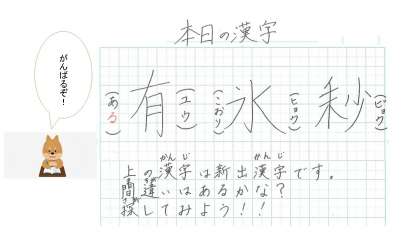 本日の漢字
がんばるぞ！
(ある)有(ユウ) (こおり)氷(ヒョウ) 秒(ビョウ)
かんじ かんじ
上の漢字は新出漢字です。
間違いはあるかな？
探してみよう！！